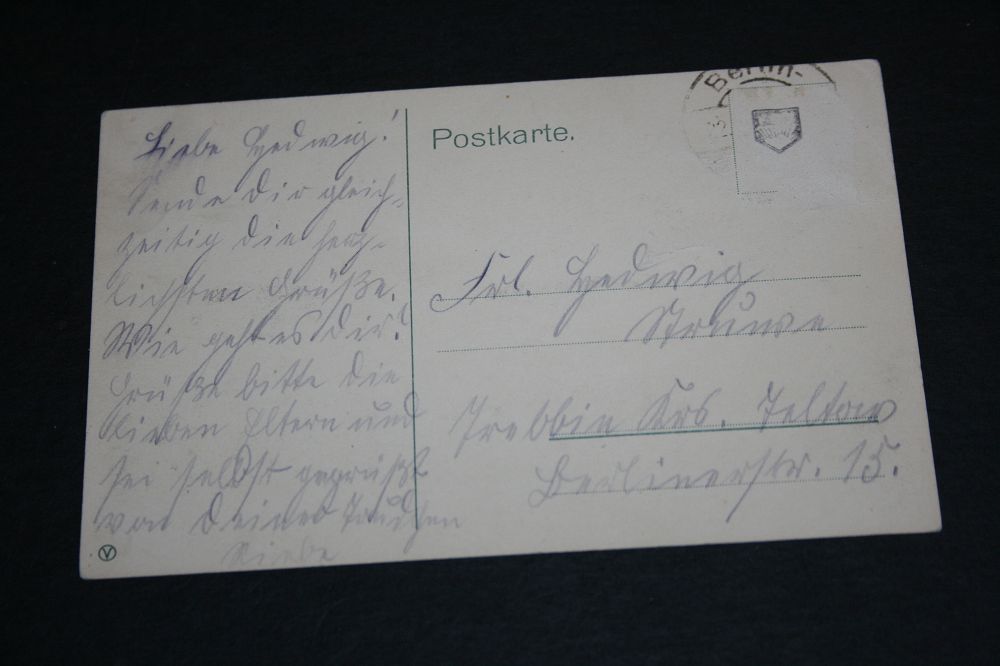 Liebe Hedwig!
Sende Dir gleich-
zeitig die herz-
lichsten Grüße.
Wie geht es Dir?
Grüße bitte die
lieben Eltern und
sei selbst gegrüßt
von Deiner
Postkarte.
Berlin-
Frl. Hedwig
Struwe
Trebbin Krs. Teltow
Berlinerstr. 15.
V